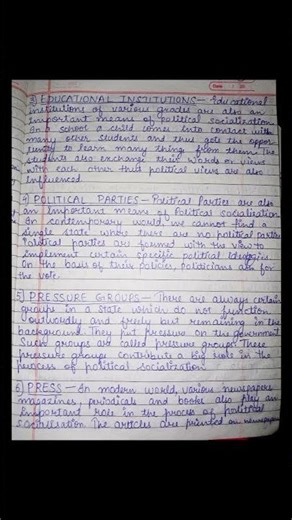 3) EDUCATIONAL INSTITUTIONS - Educational
institutions of various grades are also an
important means of political socialization.
In a school a child comes into contact with
many other students and thus gets the oppor
tunity to learn many thing from them. The
students also exchange their words or views
with each other thus political views are also
influenced.
4) POLITICAL PARTIES - Political Parties are also
an important means of Political Socialisation
In contemporary world we cannot find a
single state where there are no political parties
Political parties are formed with the view to
implement certain specific political
On the basis of their policies, politicians ask for
the vote.
5) PRESSURE GROUPS - There are always certain
groups in a State which do not function
outwardly and freely but remaining in the
background. They put pressure on the government.
Such groups are called pressure groups. These
pressure groups contribute a big role in the
process of political socialization
6) PRESS - In modern world, various newspapers
magazines, periodicals and books also play an
important role in the process of political
socialisation. The articles are printed on newspapers